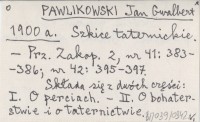 PAWLIKOWSKI Jan Gwalbert
1900 a. Szkice taternickie.
– Prz. Zakop. 2, nr 41: 383-
-386; nr 42: 395-397.
Składa się z dwóch części:
I. O perciach. – II. O bohater-
stwie i o taternictwie.